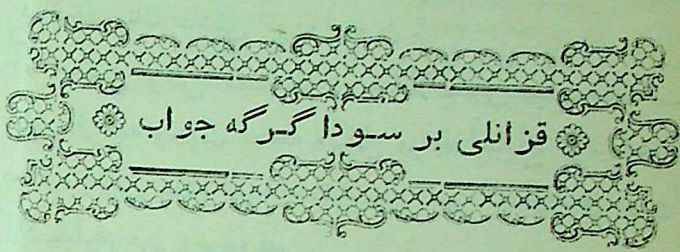 قزانلی بر سودا گرگه جواب